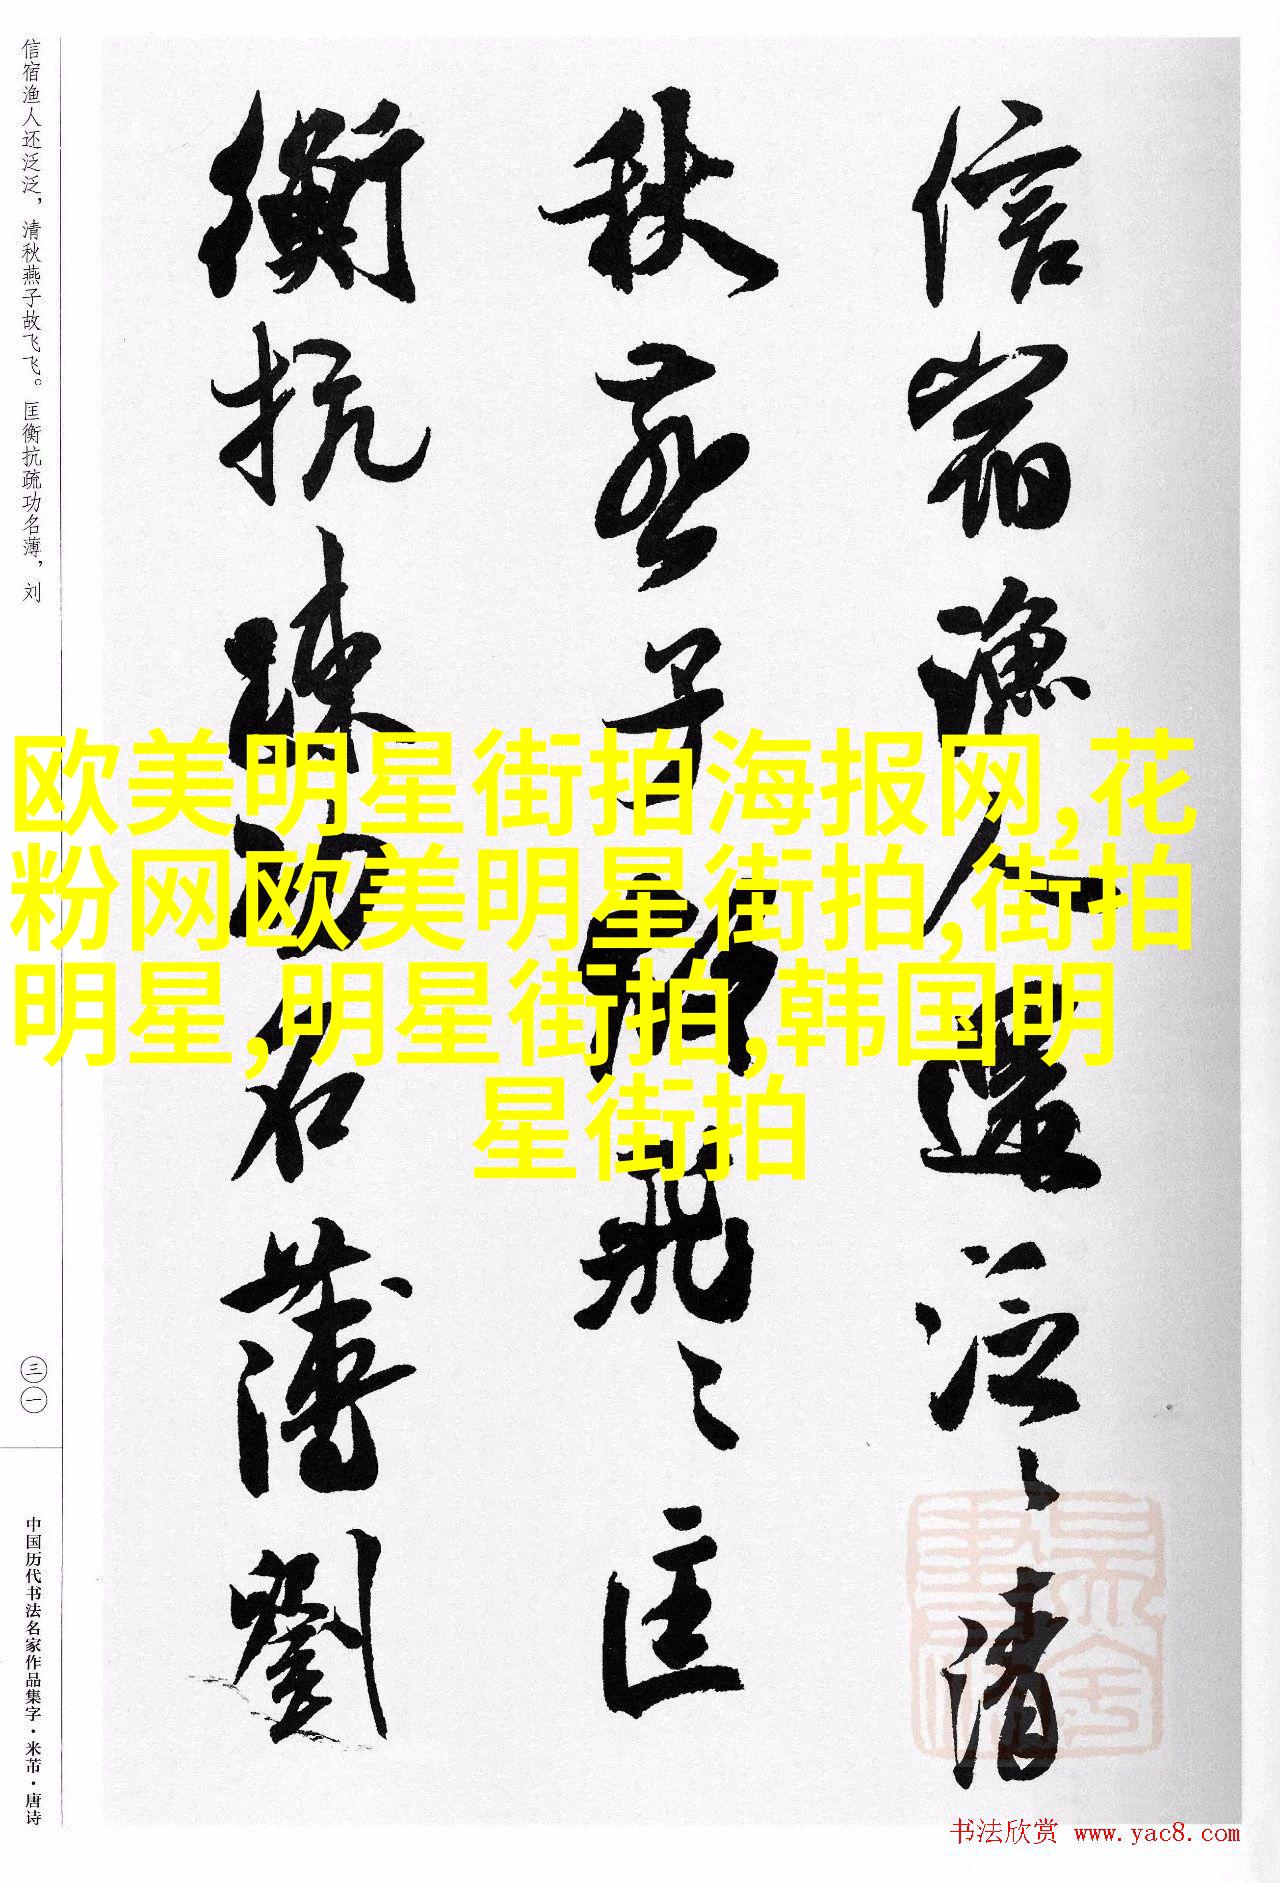 信宿渔人还泛泛，清秋燕子故飞飞。匡衡抗疏功名薄，刘
信宿漁人還泛〻清
秋燕子故飛〻匡
衡抗疏功名薄劉
欧美明星街拍海报网,花
粉网欧美明星街拍,街拍
明星,明星街拍,韩国明
星街拍
三一
中国历代书法名家作品集字·米芾·唐诗
书法欣赏 www.yac8.com